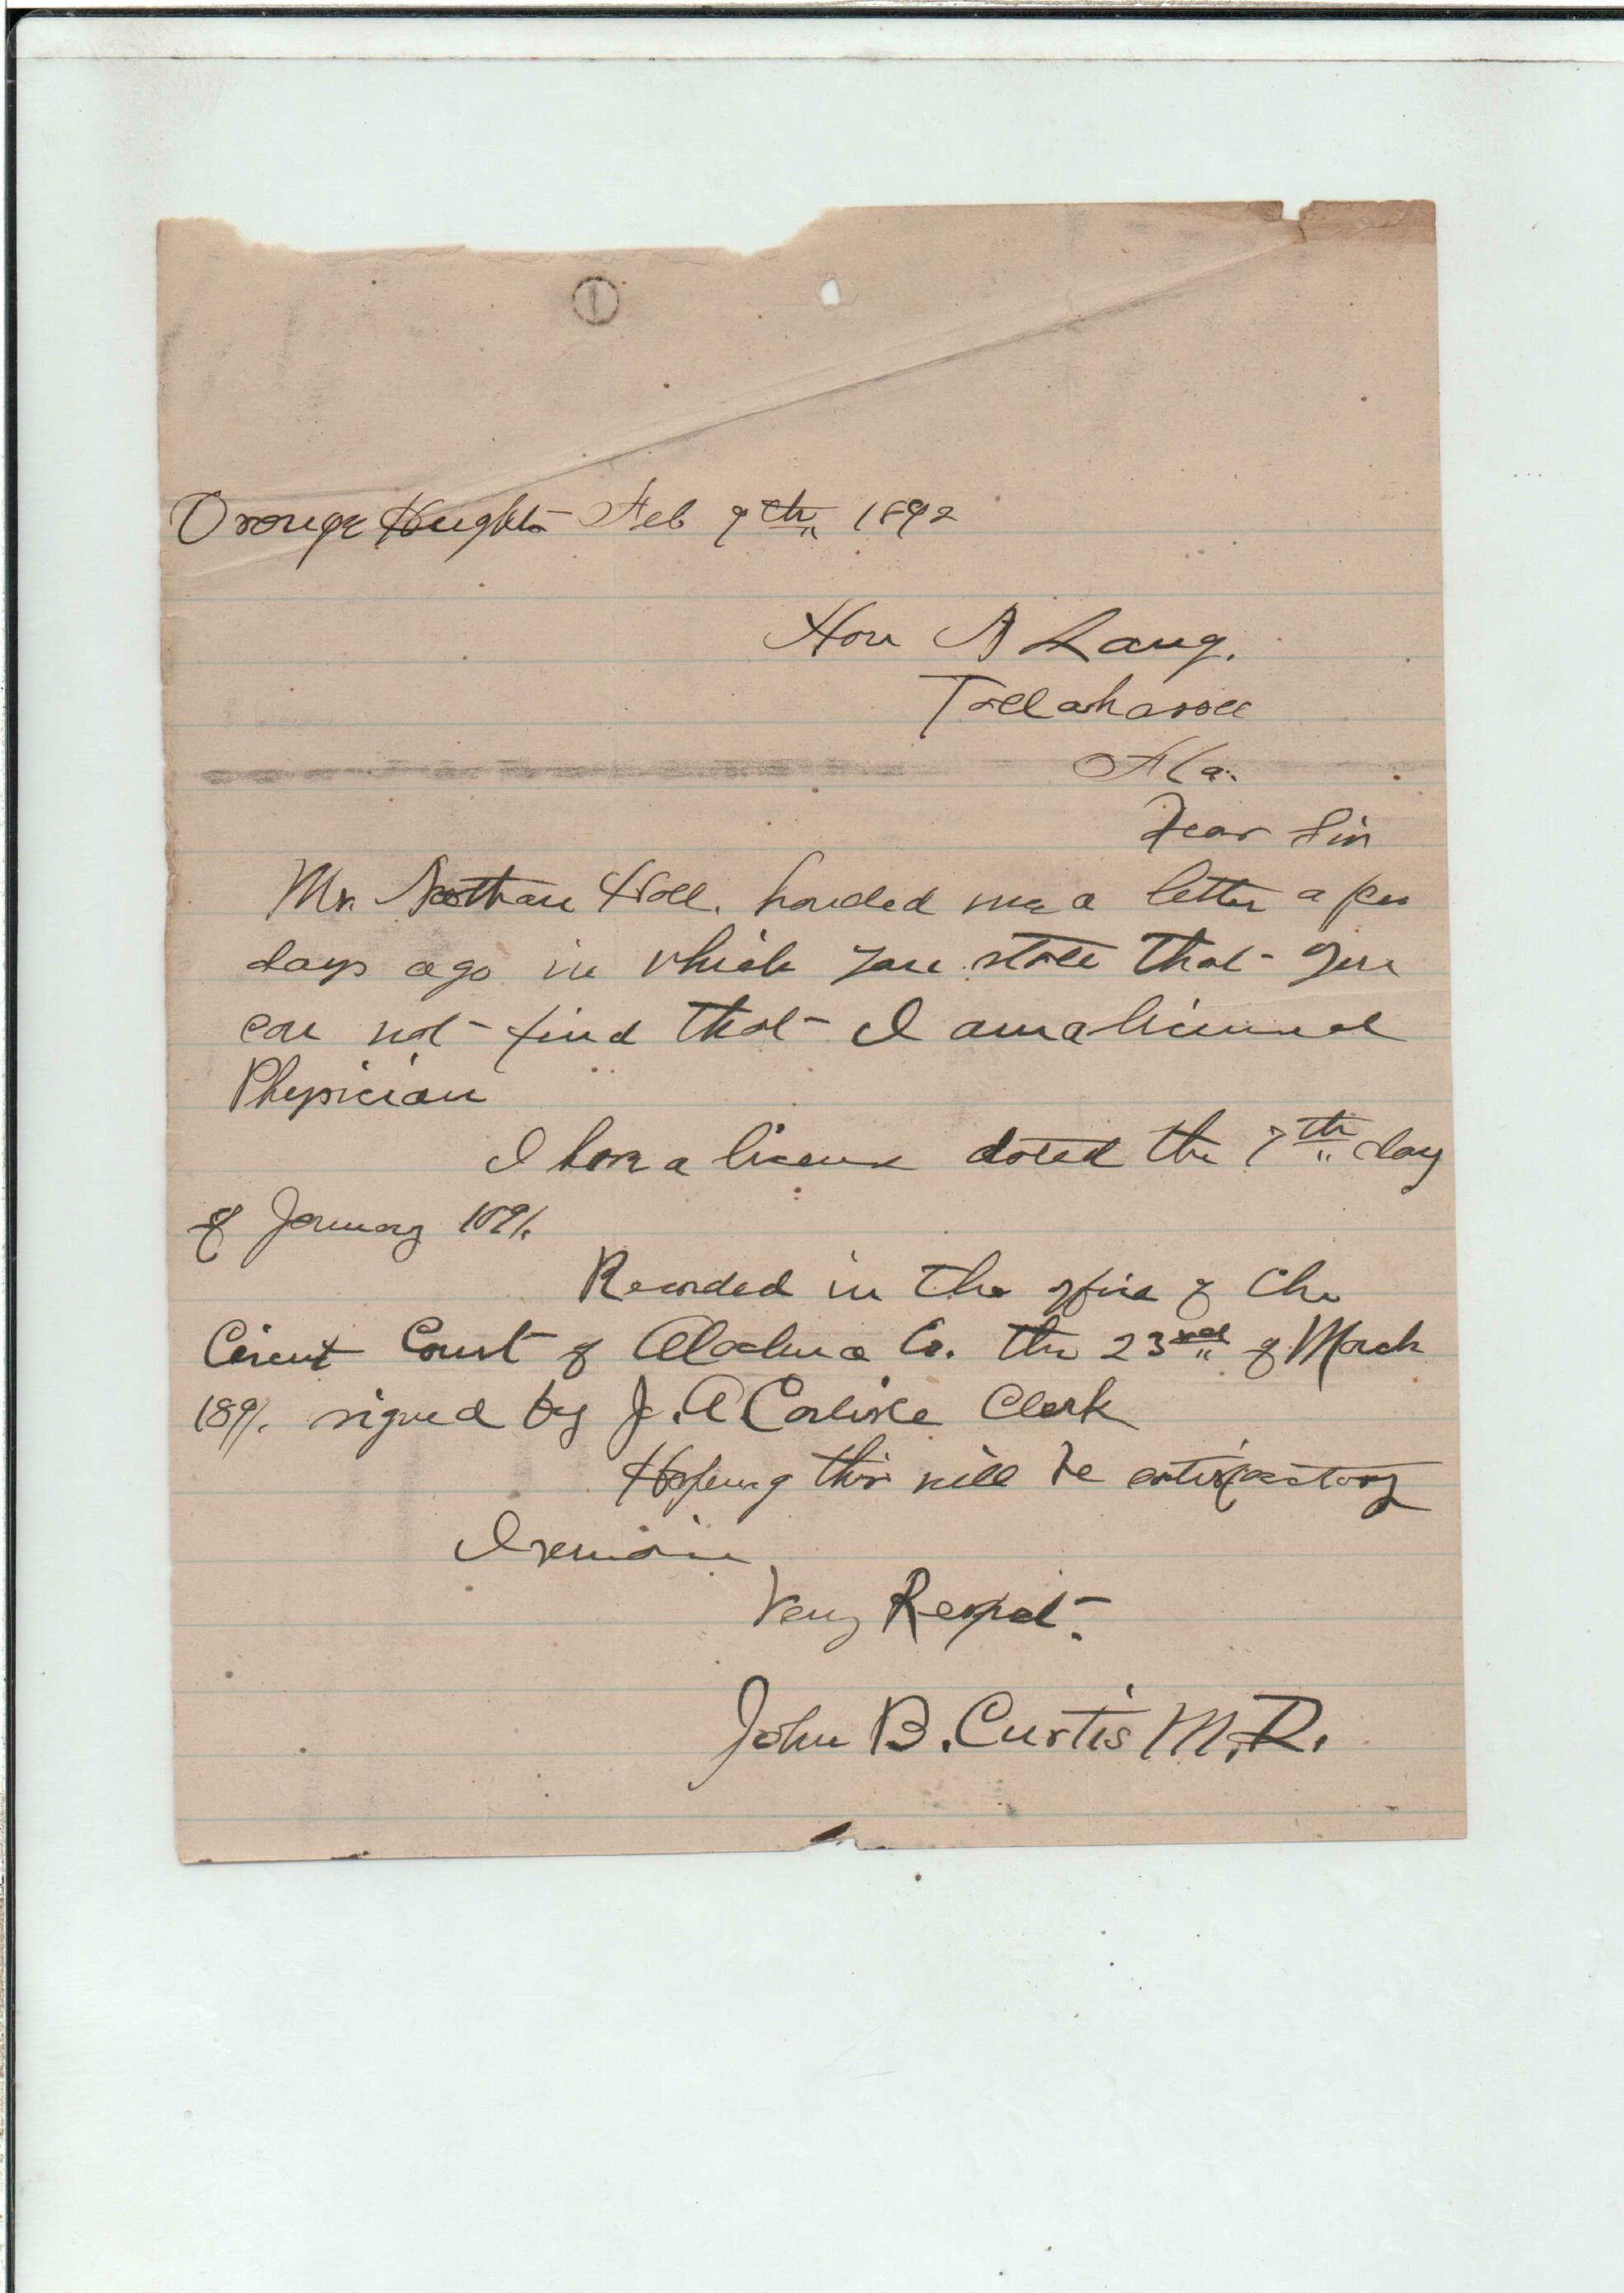 1
Orange Heights Feb 9th 1892
Hon A Lang.
Tallahassee
Fla.
Dear Sir
Mr. Nathan Hall. handed me a letter a few
days ago in which you state that you
can not find that I am a licensed
Physician
I have a license dated the 7th day
of January 1891.
Recorded in the office of the
Circuit Court of Alachua Co. the 23rd of March
1891. signed by J. A Carlisle Clerk
Hoping this will be satisfactory
I remain
Very Respect.
John B. Curtis M.D.